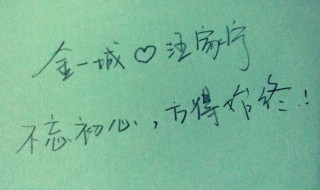 金一城♡汪家宁
不忘初心，方得始终！